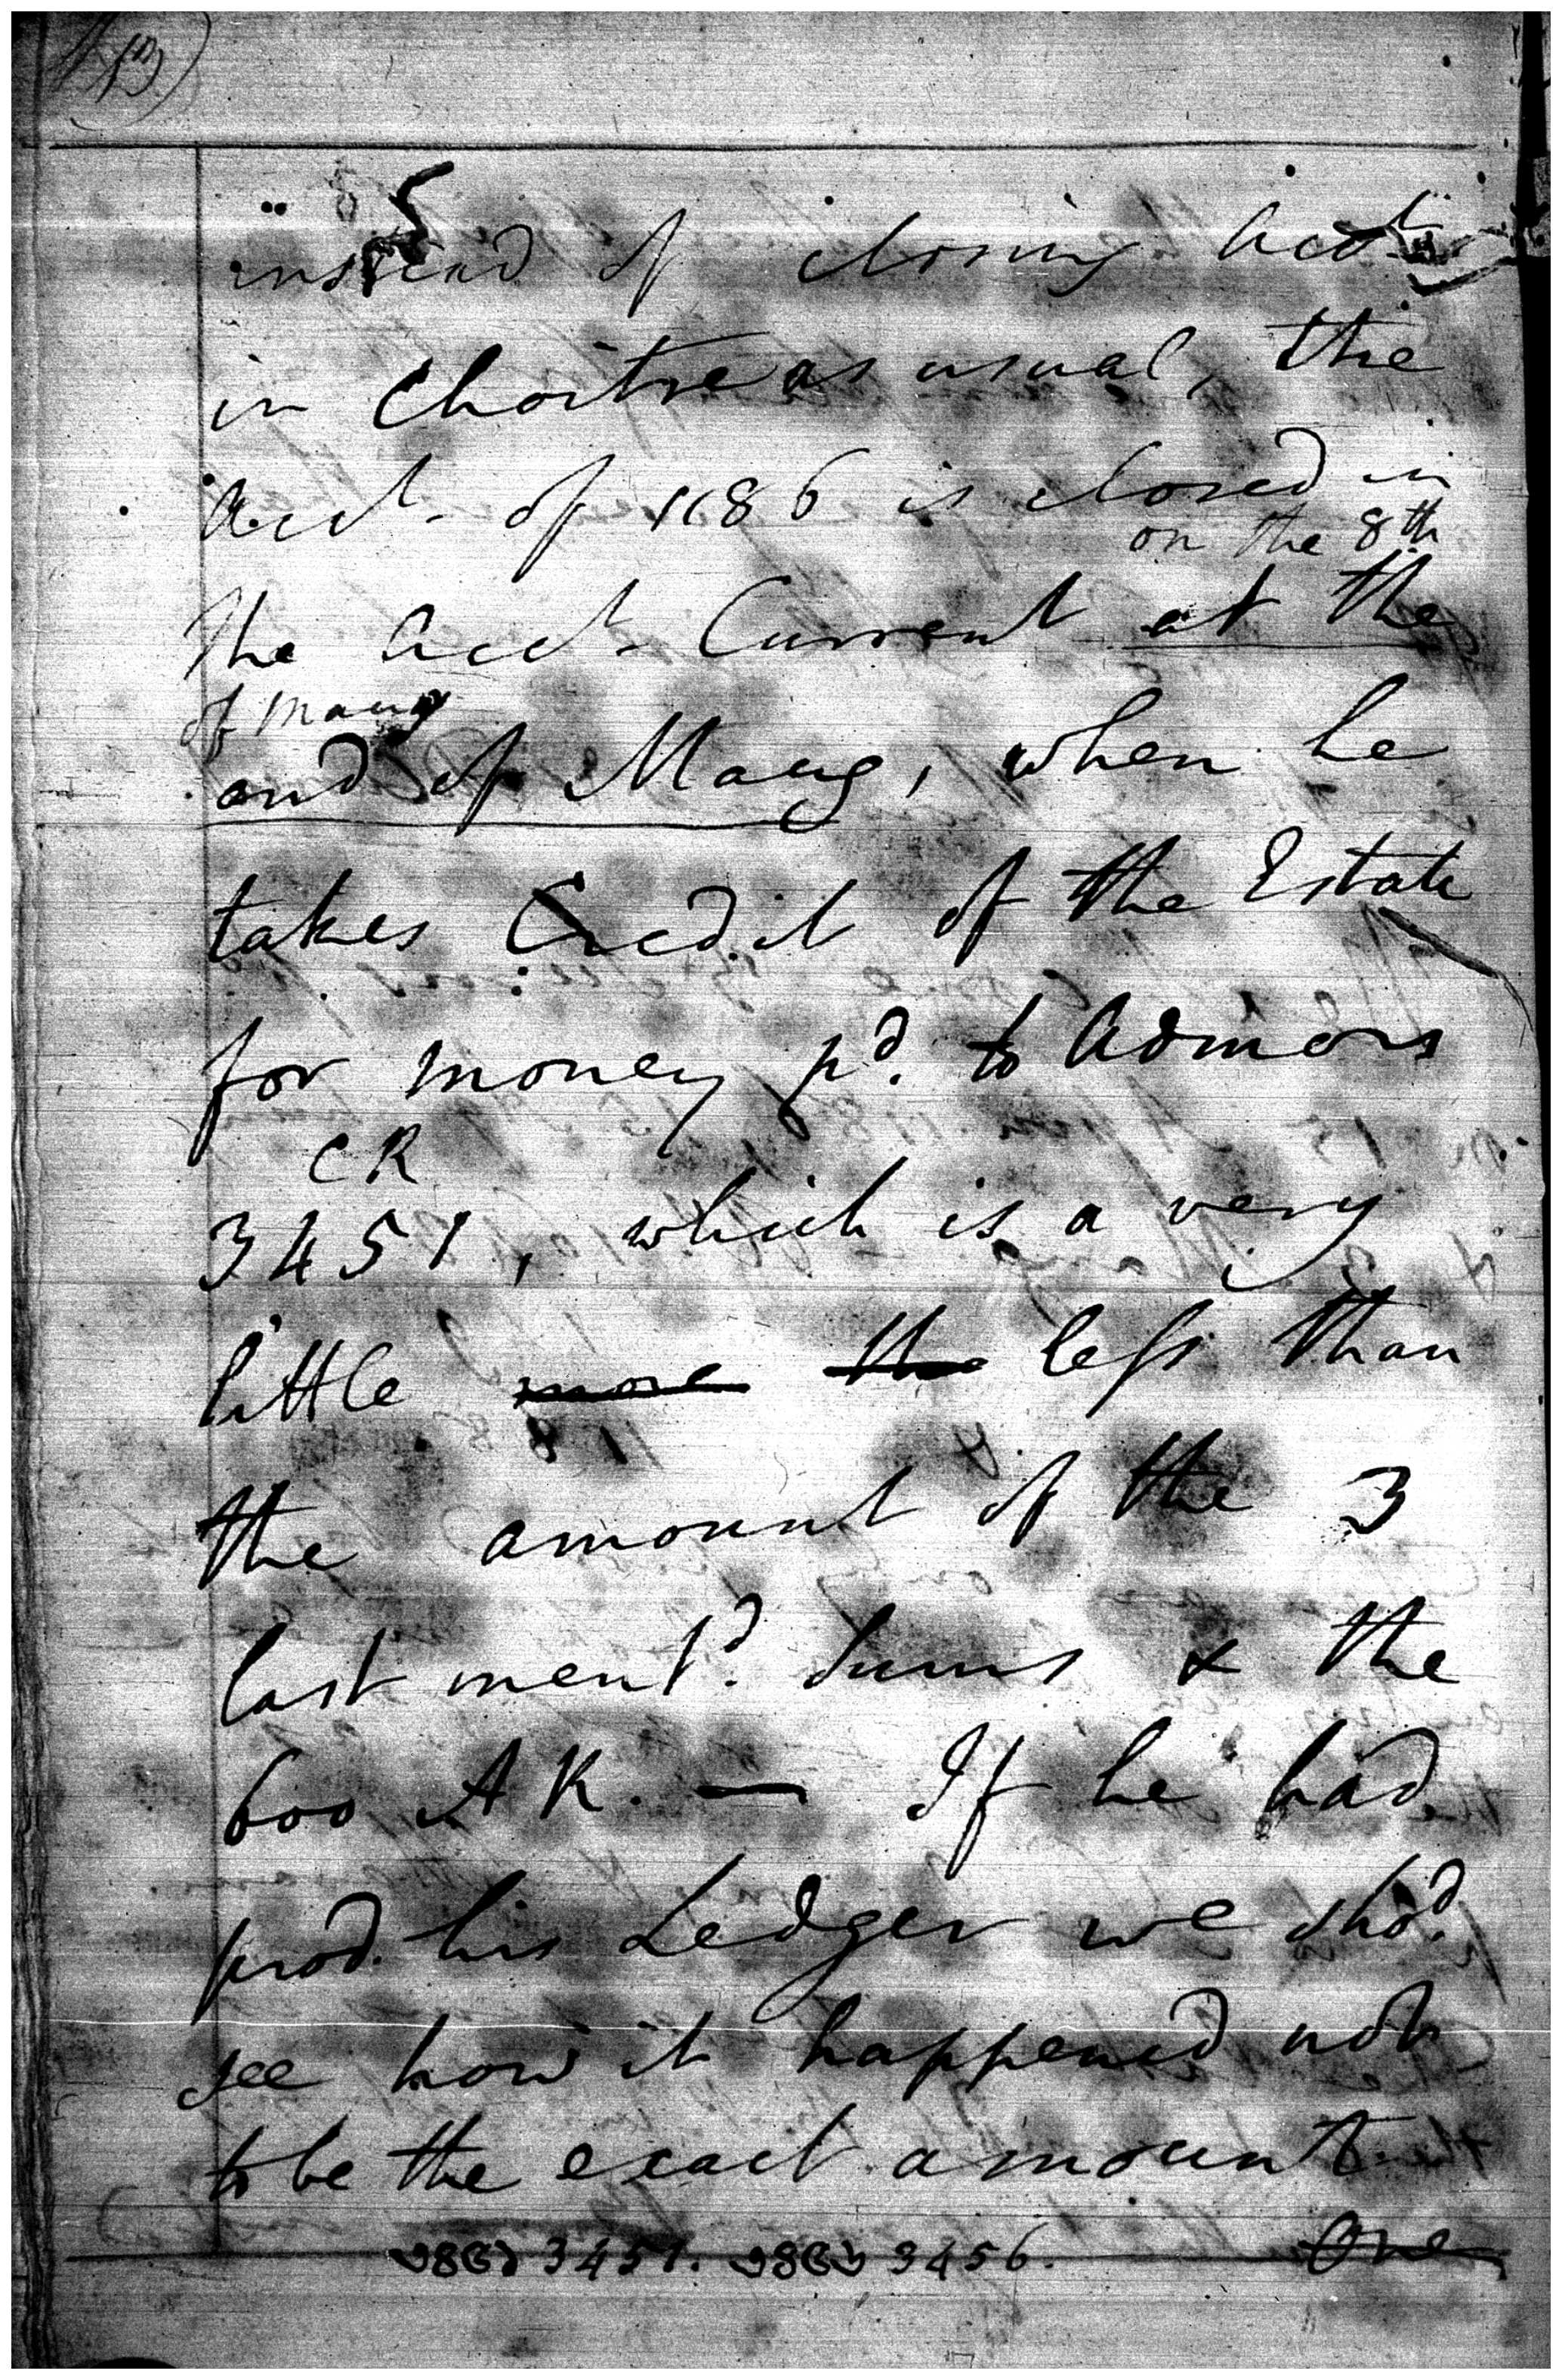 instead of closing Acct
in Choitre as usual, the
Acct. of 1186 is closed in
on the 8th
the Acct. Current at the
of Maug
end of Maug, when he
takes Credit of the Estate
for money pd. to Admors
CR
3451, which is a very
little more the less than
the amount of the 3
last mentd. Sums & the
600 AR. — If he had
prod. his Ledger we shod.
see how it happened not
to be the exact amount
3451. 3456. One